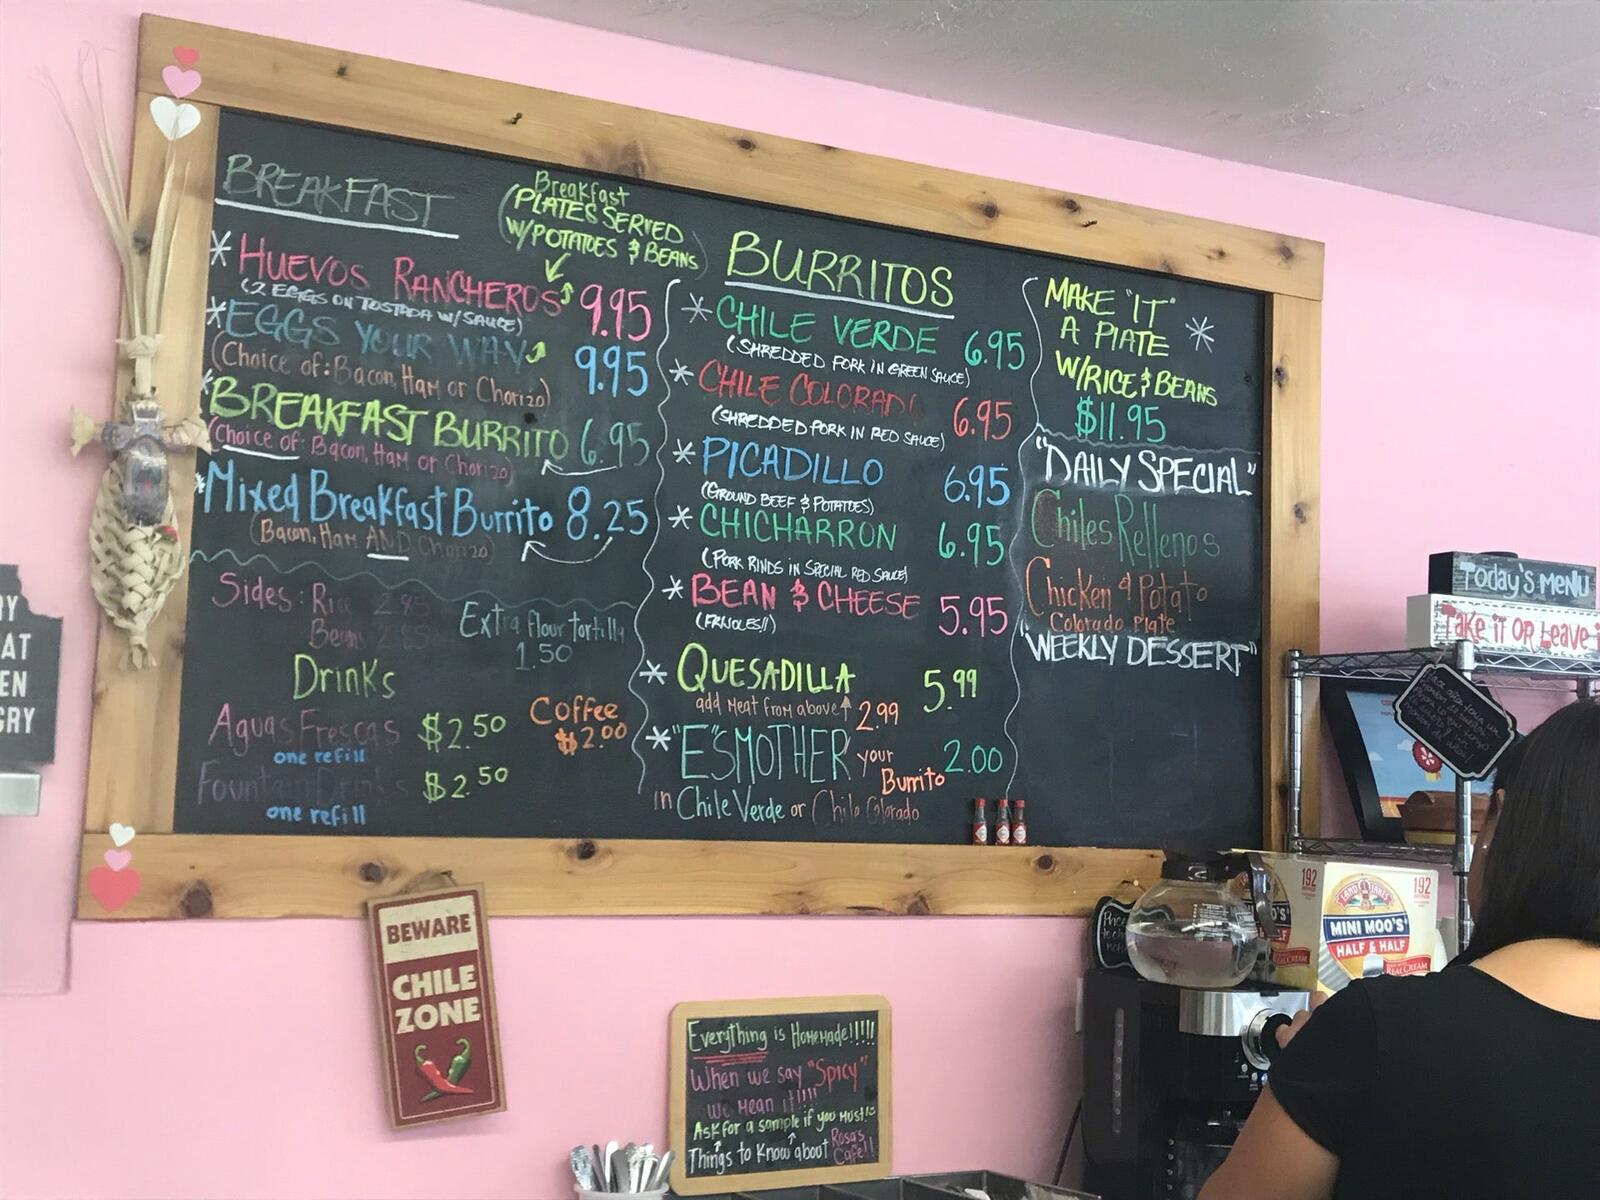 BREAKFAST
Breakfast
(PLATES SERVED
W/POTATOES & BEANS)
* HUEVOS RANCHEROS 9.95
(2 EGGS ON TOSTADA W/ SAUCE)
* EGGS YOUR WAY 9.95
(Choice of: Bacon, Ham or Chorizo)
* BREAKFAST BURRITO 6.95
(Choice of: Bacon, Ham or Chorizo)
* Mixed Breakfast Burrito 8.25
(Bacon, Ham AND Chorizo)
Sides: Rice 2.85
Beans 2.85
Extra flour tortilla
1.50
Drinks
Aguas Frescas $2.50
one refill
Fountain Drinks $2.50
one refill
Coffee
$2.00
BURRITOS
* CHILE VERDE 6.95
(SHREDDED PORK IN GREEN SAUCE)
* CHILE COLORADO 6.95
(SHREDDED PORK IN RED SAUCE)
* PICADILLO 6.95
(GROUND BEEF & POTATOES)
* CHICHARRON 6.95
(PORK RINDS IN SPECIAL RED SAUCE)
* BEAN & CHEESE 5.95
(FRIJOLES!!)
* QUESADILLA 5.99
add meat from above 2.99
* "E"SMOTHER your Burrito 2.00
in Chile Verde or Chile Colorado
MAKE "IT" *
A PLATE
W/RICE & BEANS
$11.95
"DAILY SPECIAL"
Chiles Rellenos
Chicken & Potato
Colorado Plate
"WEEKLY DESSERT"
RY
AT
EN
GRY
BEWARE
CHILE
ZONE
Everything is Homemade!!!!!
When we say "Spicy"
we mean it!!!!
Ask for a sample if you must!!
Things to Know about Rosa's
Café!!
Today's Menu
Take it OR Leave i
192
192
LAND O LAKES
MINI MOO'S
HALF & HALF
REAL CREAM